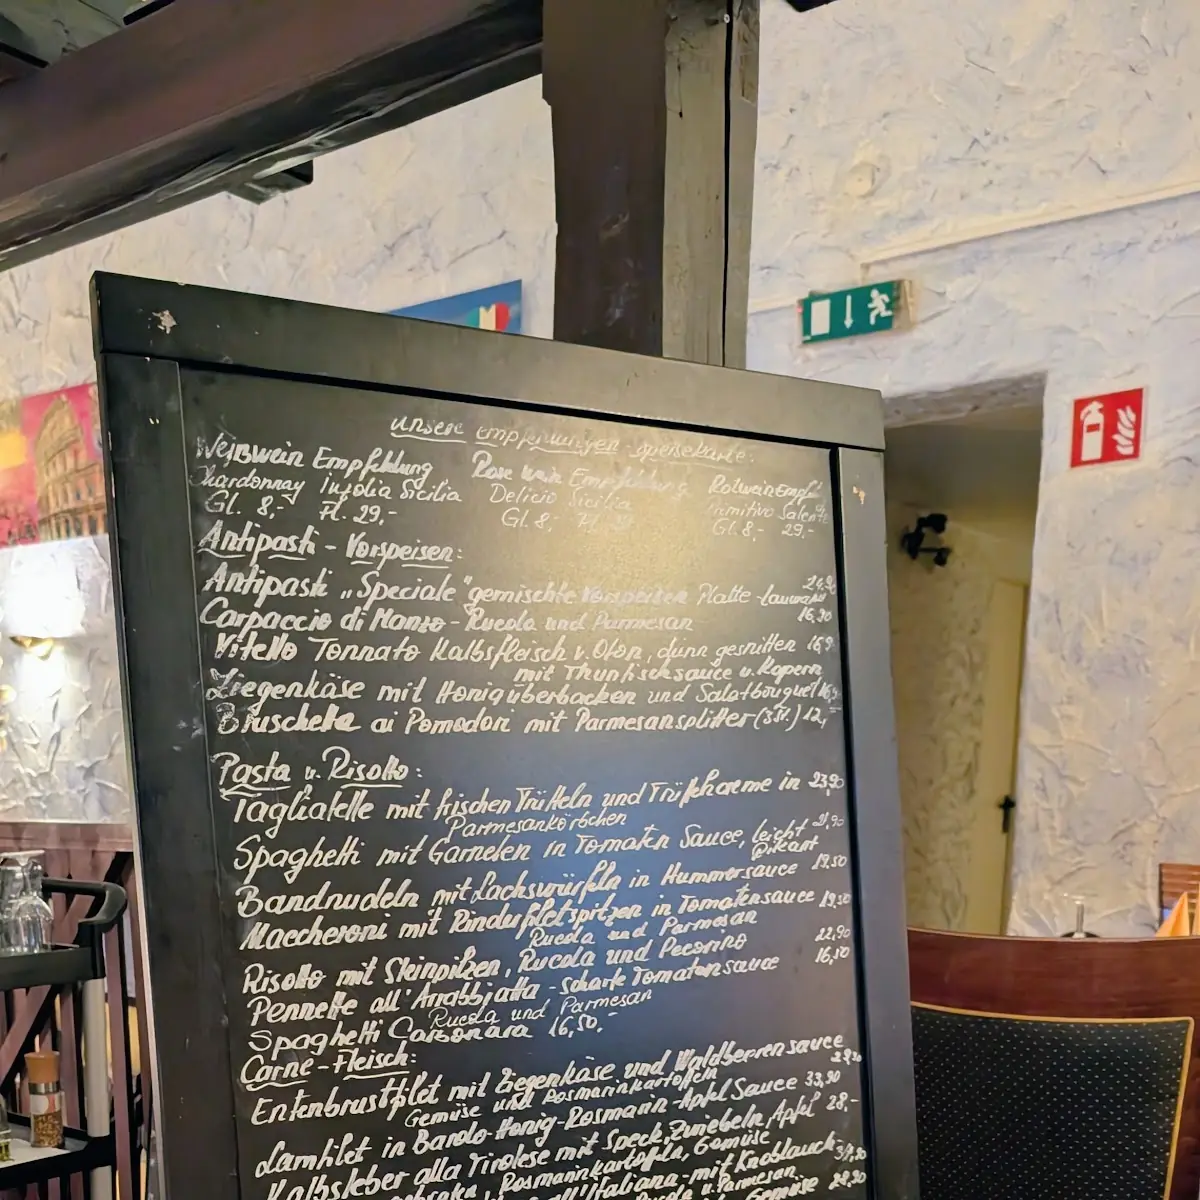 unsere Empfehlungen - Speisekarte:
Weißwein Empfehlung Rose wein Empfehlung Rotwein Empf
Chardonnay Insolia Sicilia Delicio Sicilia Primitivo Salento
Gl. 8,- Fl. 29,- Gl. 8,- Fl. Gl. 8,- 29,-
Antipasti - Vorspeisen:
Antipasti „Speciale" gemischte Vorspeisen Platte - lauwarm
Carpaccio di Manzo - Rucola und Parmesan 16,90
Vitello Tonnato Kalbsfleisch v. Ofen, dünn gesnitten 16,9
mit Thunfischsauce u. Kapern
Ziegenkäse mit Honig überbacken und Salatbouquet
Bruschetta ai Pomodori mit Parmesansplitter (3 St.) 12,-
Pasta u. Risotto:
Tagliatelle mit frischen Trüffeln und Trüffelcreme in 23,90
Parmesankörbchen
Spaghetti mit Garnelen in Tomaten Sauce, leicht 21,90
Pikant
Bandnudeln mit Lachswürfeln in Hummersauce 19,50
Maccheroni mit Rinderfiletspitzen in Tomatensauce 19,50
Rucola und Parmesan
Risotto mit Steinpilzen, Rucola und Pecorino 22,90
Pennette all'Arrabbiatta - scharfe Tomatensauce 16,50
Rucola und Parmesan
Spaghetti Carbonara 16,50,-
Carne - Fleisch:
Entenbrustfilet mit Ziegenkäse und Waldbeerensauce
Gemüse und Rosmarinkartoffeln
Lamfilet in Barolo-Honig-Rosmarin-Apfel Sauce 33,90
Kalbsleber alla Tirolese mit Speck, Zwiebeln, Apfel 28,-
Rosmarinkartoffeln, Gemüse
all'Italiana - mit Knoblauch
Rucola u. Parmesan
Gemüse 28,90